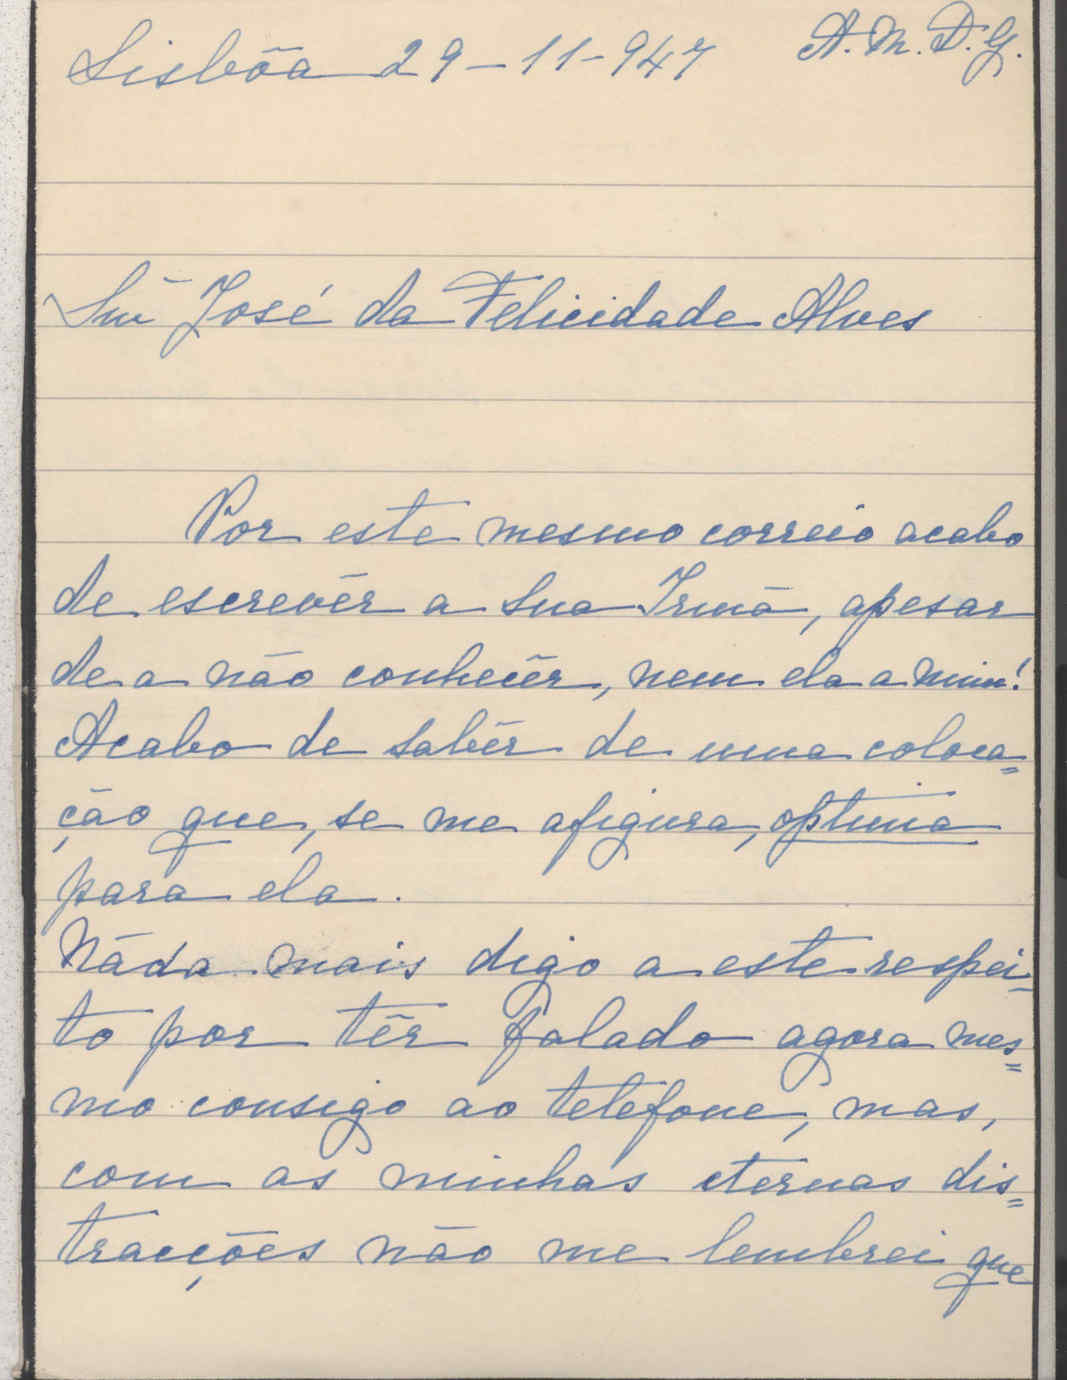 Lisbôa 29-11-947 A. M. D. G.
Snr José da Felicidade Alves
Por este mesmo correio acabo
de escrevêr a sua Irmã, apesar
de a não conhecêr, nem ela a mim!
Acabo de sabêr de uma coloca=
ção que, se me afigura, optima
para ela.
Náda mais digo a este respei=
to por têr falado agora mes=
mo consigo ao telefone, mas,
com as minhas eternas dis=
tracções não me lembrei que